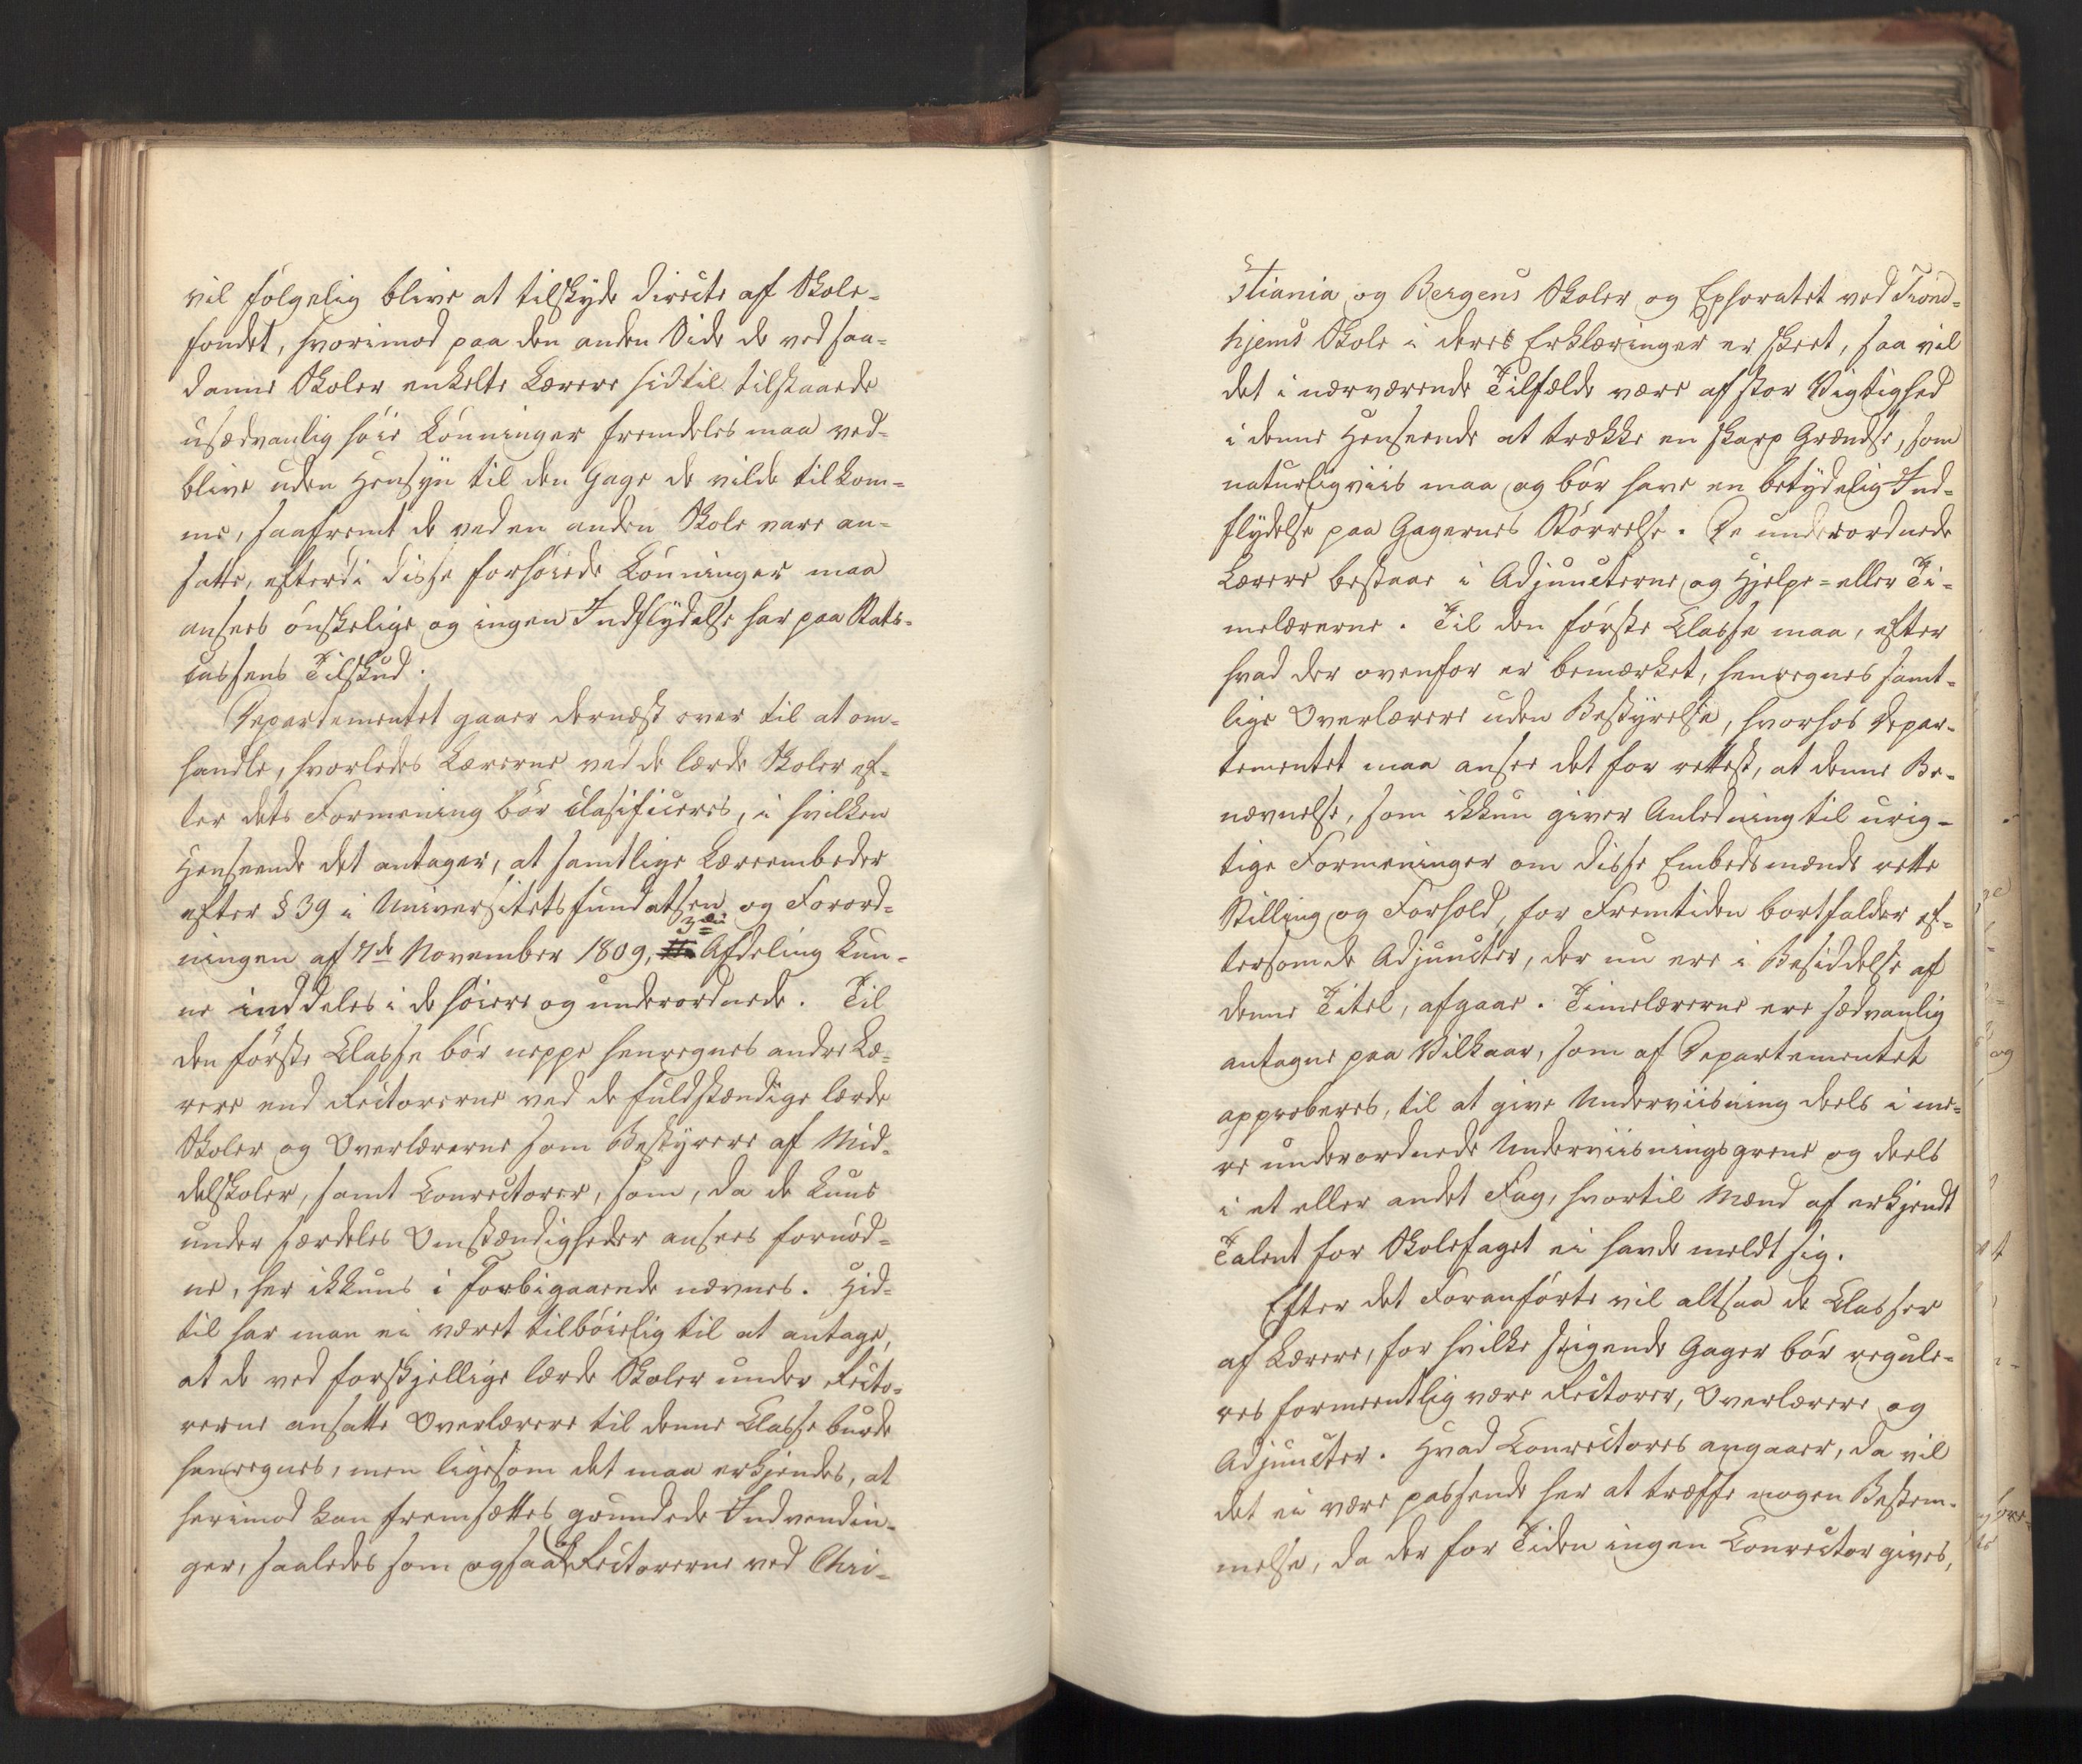 vil følgelig blive at tilskyde directe af Skole-
fondet, hvorimod paa den anden Side de ved saa-
danne Skoler enkelte Lærere hidtil tilstaaede
usædvanlig høie Lønninger fremdeles maa ved-
blive uden Hensyn til den Gage de vilde tilkom-
me, saafremt de ved en anden Skole vare an-
satte, efterdi disse forhøiede Lønninger maa
ansees ønskelige og ingen Indflydelse har paa Stats-
cassens Tilskud.
Departementet gaaer dernæst over til at om-
handle, hvorledes Lærerne ved de lærde Skoler ef-
ter dets Formening bør clasificeres, i hvilken
Henseende det antager, at samtlige Læreembeder
efter § 39 i Universitetsfundatsen og Forord-
ningen af 7de November 1809, 3die Afdeling kun-
ne inddeles i de høiere og underordnede. Til
den første Classe bør neppe henregnes andre Læ-
rere end Rectorerne ved de fuldstændige lærde
Skoler og Overlærerne som Bestyrere af Mid-
delskoler, samt Conrectorer, som, da de kuns
under særdeles Omstændigheder ansees fornød-
ne, her ikkuns i Forbigaaende nævnes. Hid-
til har man ei været tilbøielig til at antage,
at de ved forskjellige lærde Skoler under Recto-
rerne ansatte Overlærere til denne Classe burde
henregnes, men ligesom det maa erkjendes, at
herimod kan fremsættes grundede Indvendin-
ger, saaledes som ogsaa af Rectorerne ved Chri-
stiania og Bergens Skoler og Ephoratet ved Trond-
hjems Skole i deres Erklæringer er skeet, saa vil
det i nærværende Tilfælde være af stor Vigtighed
i denne Henseende at trække en skarp Grændse, som
naturligviis maa og bør have en betydelig Ind-
flydelse paa Gagernes Størrelse. De underordnede
Lærere bestaae i Adjuncterne og Hjelpe- eller Ti-
melærerne. Til den første Classe maa, efter
hvad der ovenfor er bemærket, henregnes samt-
lige Overlærere uden Bestyrelse, hvorhos Depar-
tementet maa ansee det for rettest, at denne Be-
nævnelse, som ikkun giver Anledning til urig-
tige Formeninger om disse Embedsmænds rette
Stilling og Forhold, for Fremtiden bortfalder ef-
tersom de Adjuncter, der nu ere i Besiddelse af
denne Titel, afgaae. Timelærerne ere sædvanlig
antagne paa Vilkaar, som af Departementet
approberes, til at give Underviisning deels i me-
re underordnede Underviisningsgrene og deels
i et eller andet Fag, hvortil Mænd af erkjendt
Talent for Skolefaget ei havde meldt sig.
Efter det Foranførte vil altsaa de Classer
af Lærere, for hvilke stigende Gager bør regule-
res formeentlig være Rectorer, Overlærere og
Adjuncter. Hvad Conrectores angaaer, da vil
det ei være passende her at træffe nogen Bestem-
melse, da der for Tiden ingen Conrector gives,